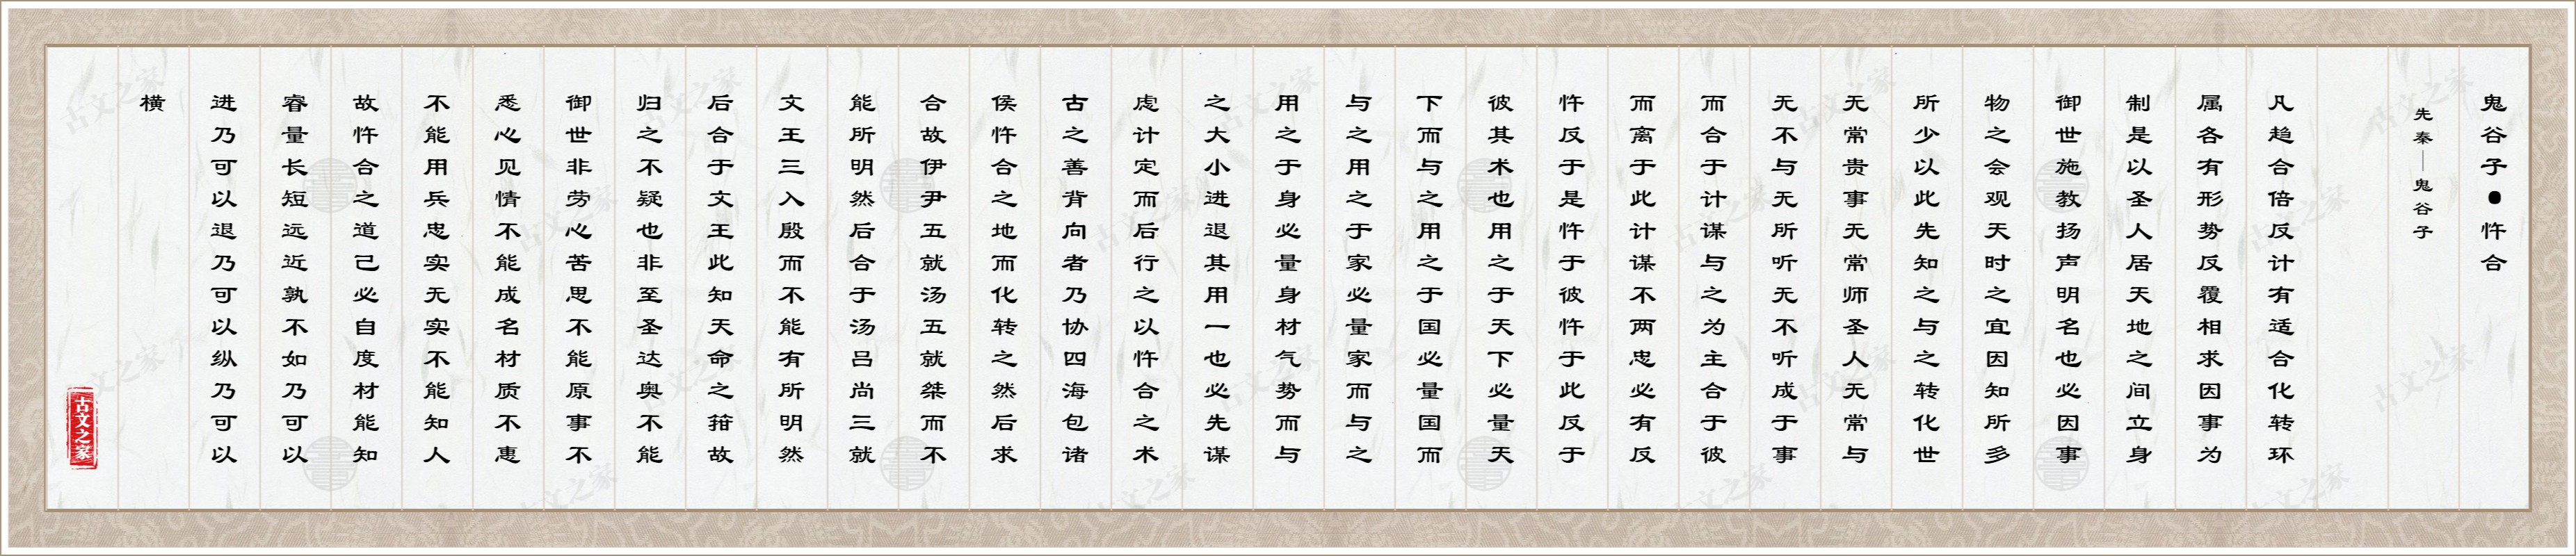 鬼谷子●忤合
先秦——鬼谷子
凡趋合倍反计有适合化转环
属各有形势反覆相求因事为
制是以圣人居天地之间立身
御世施教扬声明名也必因事
物之会观天时之宜因知所多
所少以此先知之与之转化世
无常贵事无常师圣人无常与
无不与无所听无不听成于事
而合于计谋与之为主合于彼
而离于此计谋不两忠必有反
忤反于是忤于彼忤于此反于
彼其术也用之于天下必量天
下而与之用之于国必量国而
与之用之于家必量家而与之
用之于身必量身材气势而与
之大小进退其用一也必先谋
虑计定而后行之以忤合之术
古之善背向者乃协四海包诸
侯忤合之地而化转之然后求
合故伊尹五就汤五就桀而不
能所明然后合于汤吕尚三就
文王三入殷而不能有所明然
后合于文王此知天命之箝故
归之不疑也非至圣达奥不能
御世非劳心苦思不能原事不
悉心见情不能成名材质不惠
不能用兵忠实无实不能知人
故忤合之道己必自度材能知
睿量长短远近孰不如乃可以
进乃可以退乃可以纵乃可以
横
古文之家